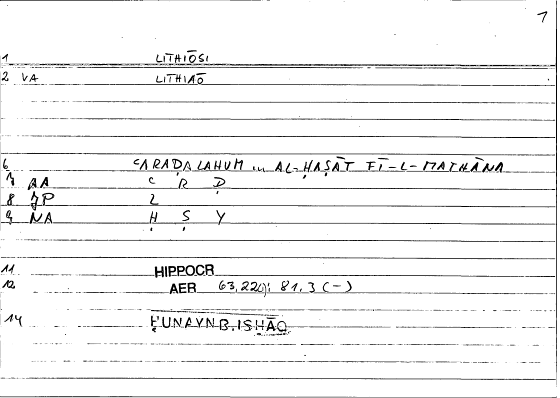 7
1 LITHIŌSI
2 VA LITHIAŌ
6 CARAḌA LAHUM ... AL-ḤAṢĀT FĪ-L-MATHĀNA
7 AA C R Ḍ
8 JP L
9 NA Ḥ Ṣ Y
11 HIPPOCR
12 AER 63,22(): 81.3 (-)
14 ḤUNAYN B. ISḤĀQ